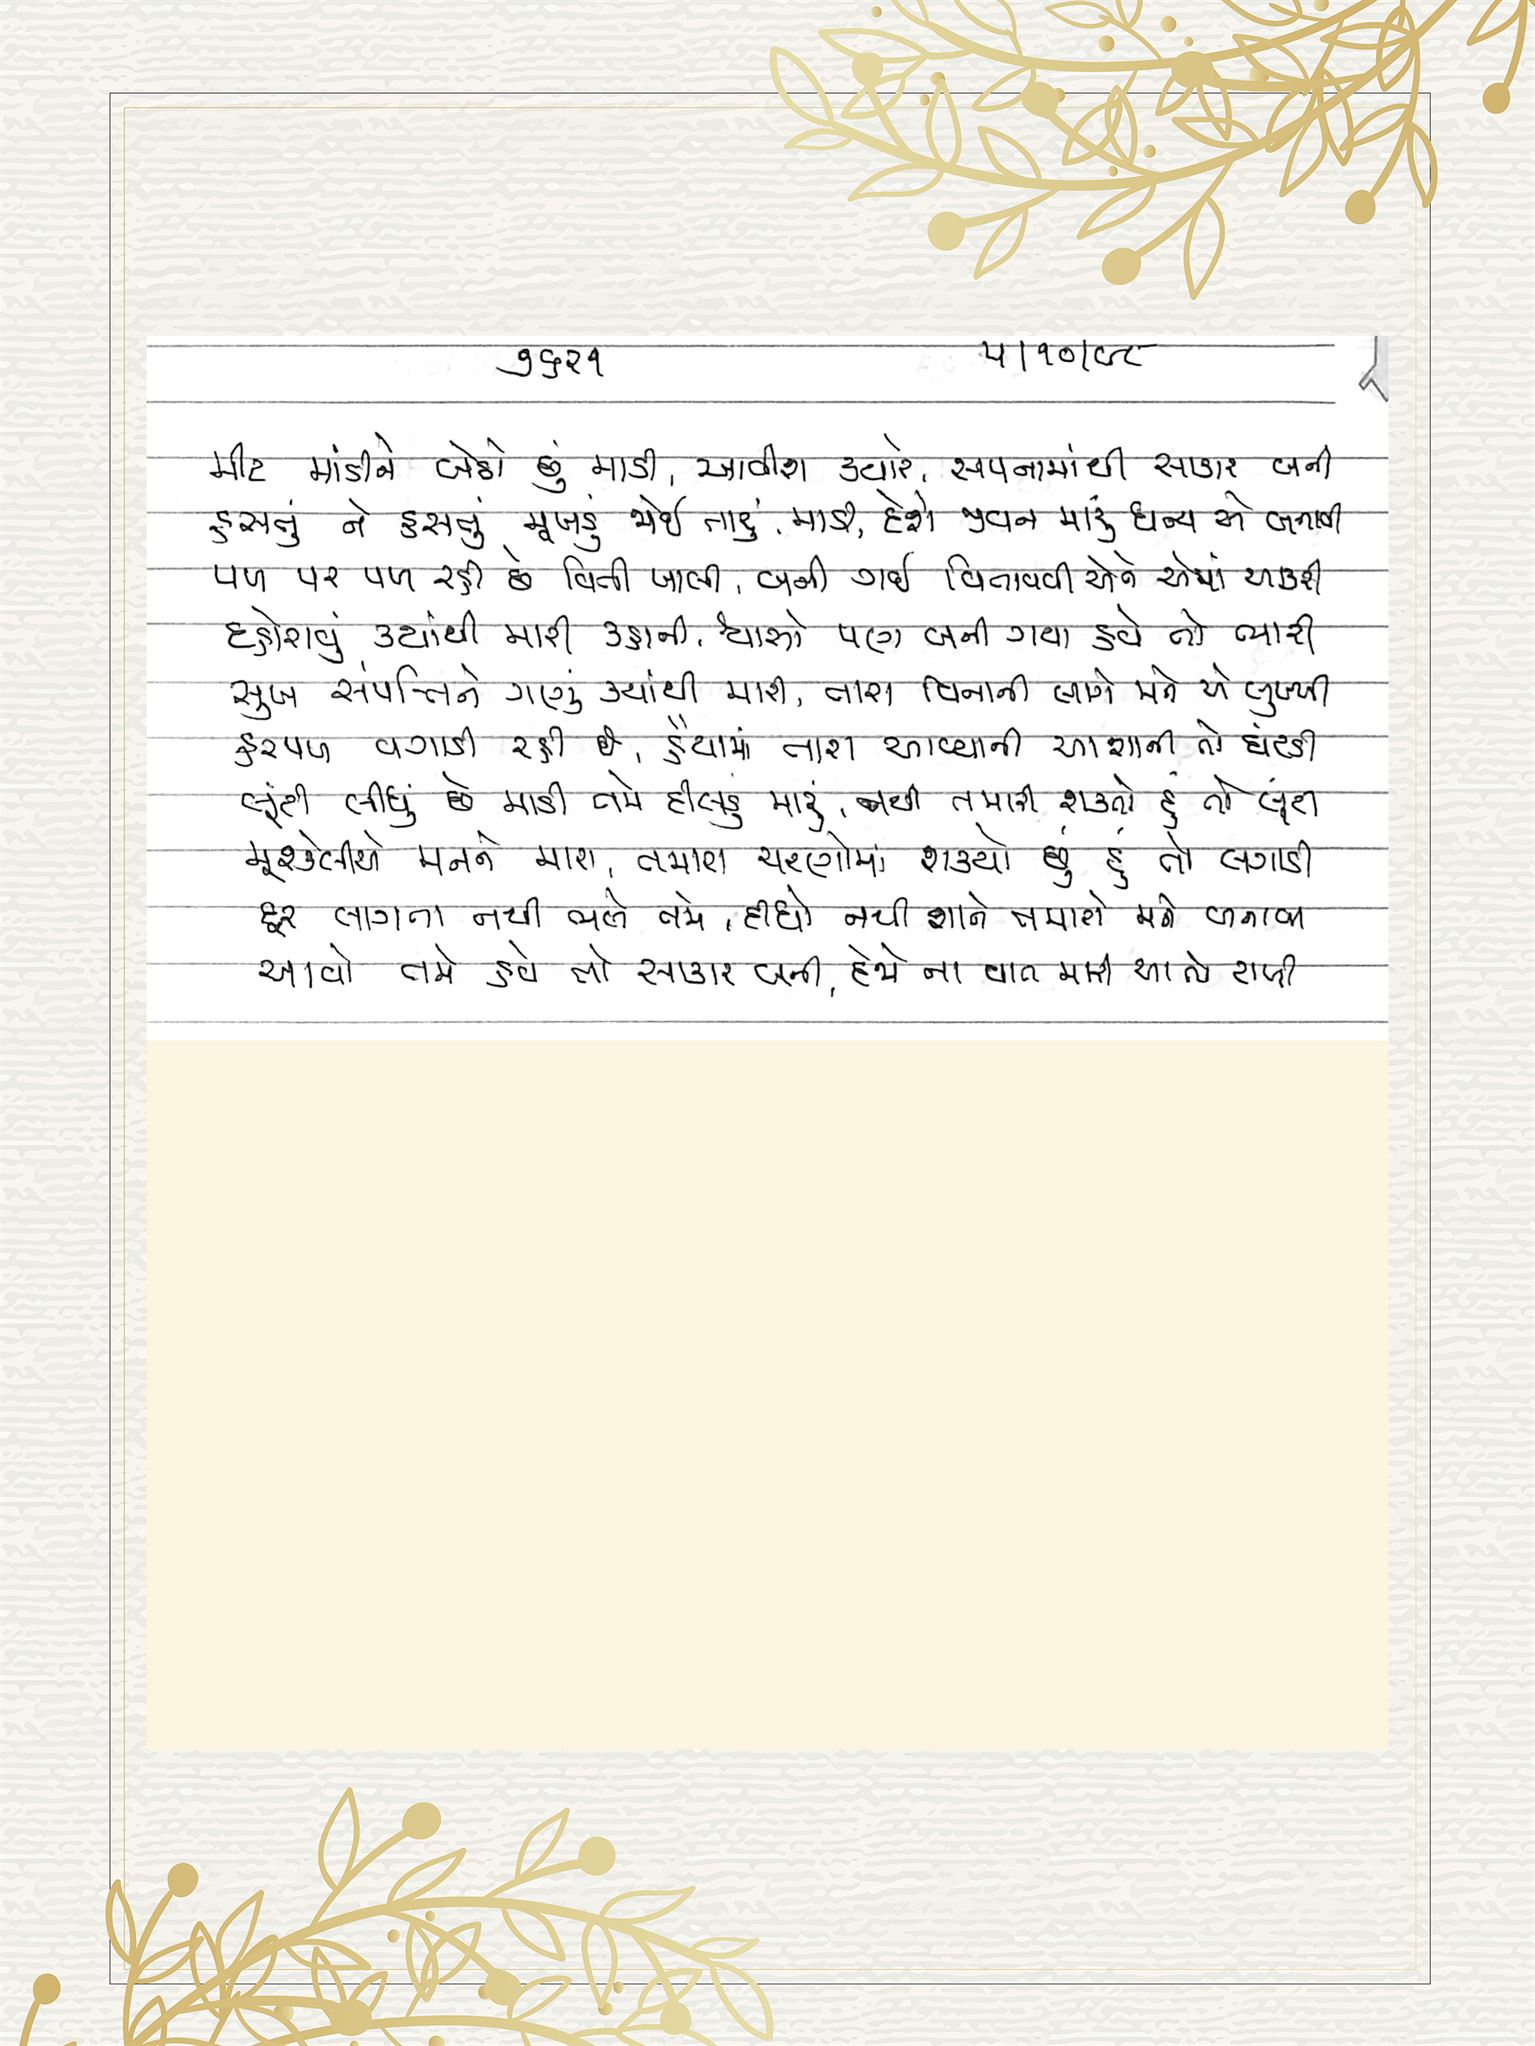 ૭૬૨૧ ૫/૧૦/૯૮
મીટ માંડીને બેઠો છું માડી, આવીશ ક્યારે, સપનામાંથી સાકાર બની
હસતું ને હસતું મૂખડું જોઈ તારું, માડી, દેશે જીવન મારું ધન્ય એ બનાવી
પળ પર પળ રહી છે વિતી ખાલી, બની ગઈ વિતાવવી એને એમાં આકરી
દહોરાવું ક્યાંથી મારી કહાની, શ્વાસો પણ બની ગયા હવે તો ન્યારી
સુખ સંપત્તિને ગણું ક્યાંથી મારી, તારા વિનાની લાગે મને એ લુખ્ખી
હરપળ વગાડી રહી છે, હૈયામાં તારા આવ્યાની આશાની તો ઘંટડી
લૂંટી લીધું છે માડી તમે દીલડું મારું, નથી તમારી શક્તો હું તો લૂંટી
મૂશ્કેલીએ મનને મારા, તમારા ચરણોમાં શક્યો છું હું તો લગાડી
દૂર લાગતા નથી ભલે તમે, દીધો નથી શાને તમારો મને બનાવી
આવો તમે હવે તો સાકાર બની, દેજો ના વાત મારી આ તો રાખી